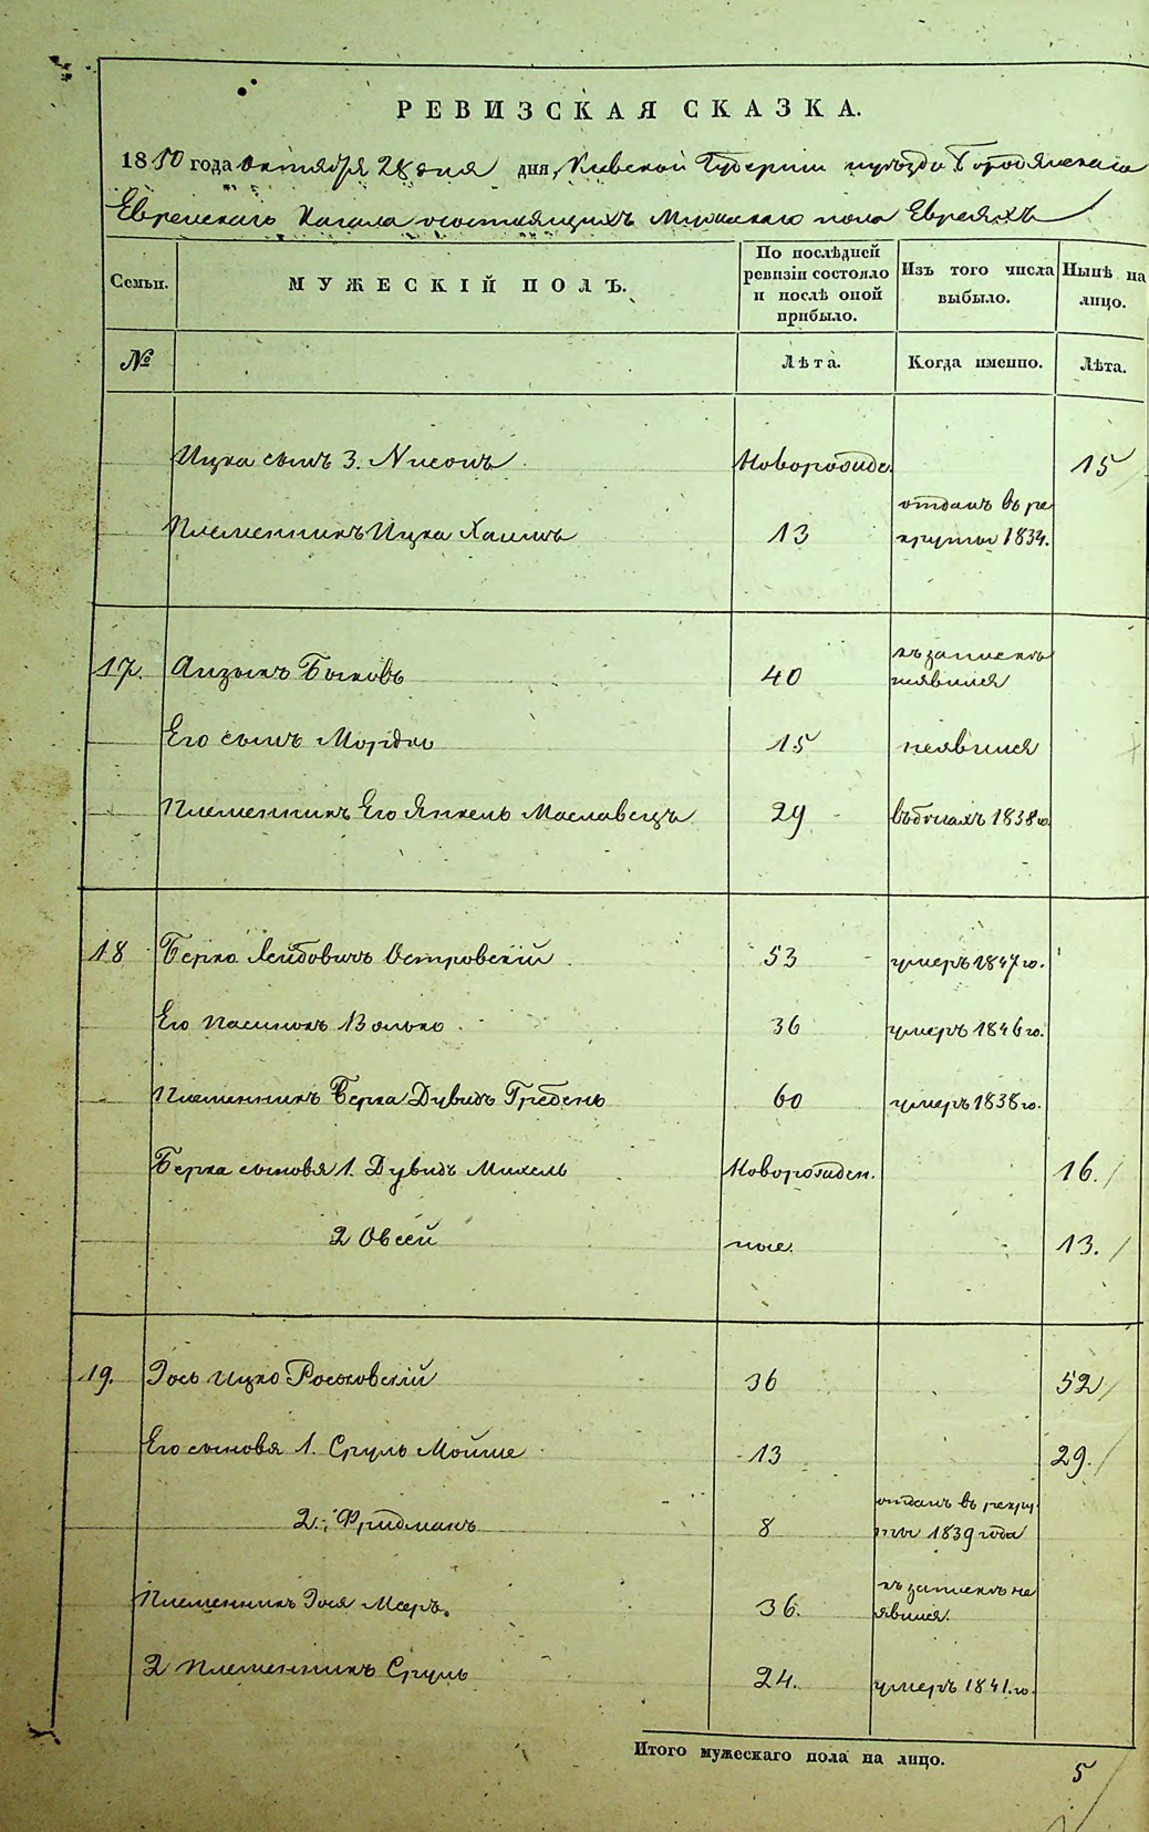 РЕВИЗСКАЯ СКАЗКА.
1850 года октября 28 дня дня, Киевской Губернии иуѣзда Бородянскаго
Еврейскаго Кагала осостоящихъ Мужескаго пола Евреяхъ
Семьи. МУЖЕСКІЙ ПОЛЪ. По послѣдней ревизіи состояло и послѣ оной прибыло. Изъ того числа выбыло. Нынѣ на лицо.
№ Лѣта. Когда именно. Лѣта.
Ицка сынъ 3. Нисонъ Новорожде. 15
Племенникъ Ицка Хаимъ 13 отданъ въ рекруты 1834.
17. Аизыкъ Быковъ 40 къ запискѣ неявился
Его сынъ Мордко 15 неявился
Племенникъ Его Янкель Маславецъ 29 въбѣгахъ 1838го.
18 Берко Лейбовичъ Островскій 53 умеръ 1847го.
Его пасинокъ Волько 36 умеръ 1846го.
Племенникъ Берка Дувидъ Гребень 60 умеръ 1838го.
Берка сыновя 1. Дувидъ Михель Новорожден. 16.
2 Овсей ные. 13.
19. Зось Ицко Росоховскій 36 52
Его сыновя 1. Сруль Мойше 13 29.
2. Фридманъ 8 отданъ въ рекруты 1839 года
Племенникъ Зося Мееръ. 36. къ запискѣ неявился.
2 племенникъ Сруль 24. умеръ 1841.го.
Итого мужескаго пола на лицо. 5